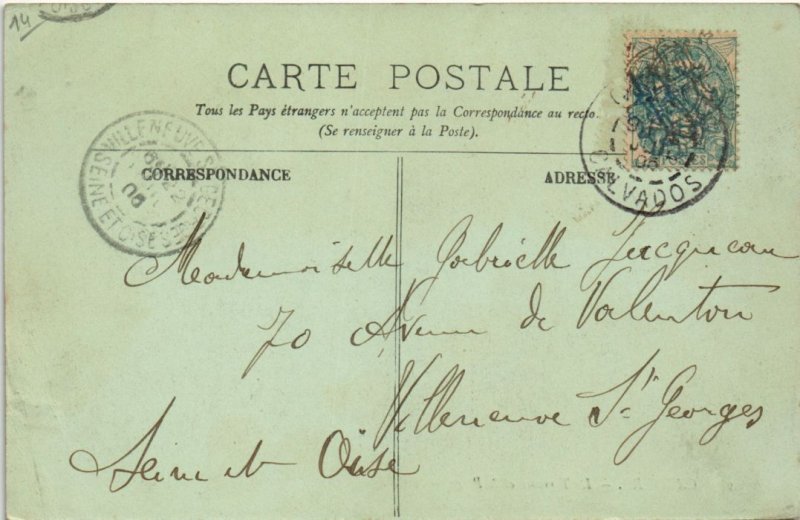 14
CARTE POSTALE
Tous les Pays étrangers n'acceptent pas la Correspondance au recto.
(Se renseigner à la Poste).
CORRESPONDANCE
ADRESSE
VILLENEUVE ST GEORGES
SEINE ET OISE
06
CALVADOS
Mademoiselle Gabrielle Jacqueau
70 Avenue de Valenton
Villeneuve St Georges
Seine et Oise